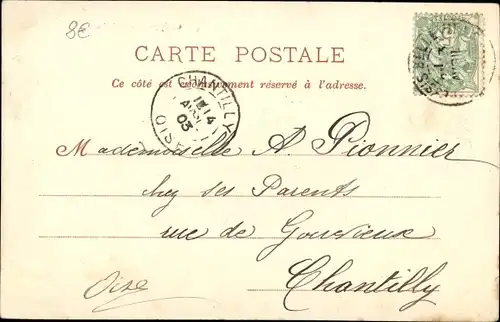 8€
CARTE POSTALE
Ce côté est exclusivement réservé à l'adresse.
CHANTILLY
14
AVRIL
03
OISE
Mademoiselle A. Pionnier
chez ses Parents
rue de Gouvieux
Chantilly
Oise